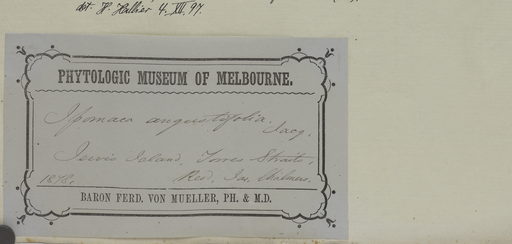 det. H. Hallier 4. XII. 97.
PHYTOLOGIC MUSEUM OF MELBOURNE.
Ipomaea angustifolia.
Jacq.
Jervis Island, Torres Straits,
1878. Rev. Jas. Chalmers.
BARON FERD. VON MUELLER, PH. & M.D.